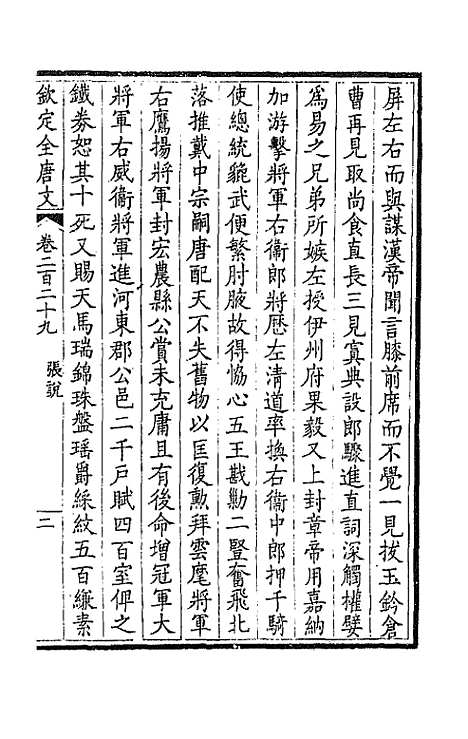 屏左右而與謀漢帝聞言膝前席而不覺一見拔玉鈐倉
曹再見取尚食直長三見寘典設郎驟進直詞深觸權嬖
爲易之兄弟所嫉左授伊州府果毅又上封章帝用嘉納
加游擊將軍右衞郎將歷左清道率換右衞中郎押千騎
使總統貔武便繁肘腋故得恊心五王戡勦二豎奮飛北
落推戴中宗嗣唐配天不失舊物以匡復勲拜雲麾將軍
右鷹揚將軍封宏農縣公賞未充庸且有後命增冠軍大
將軍右威衞將軍進河東郡公邑二千戸賦四百室俾之
鐵券恕其十死又賜天馬瑞錦珠盤瑶爵綵紋五百縑素
欽定全唐文 卷二百二十九 張說 二